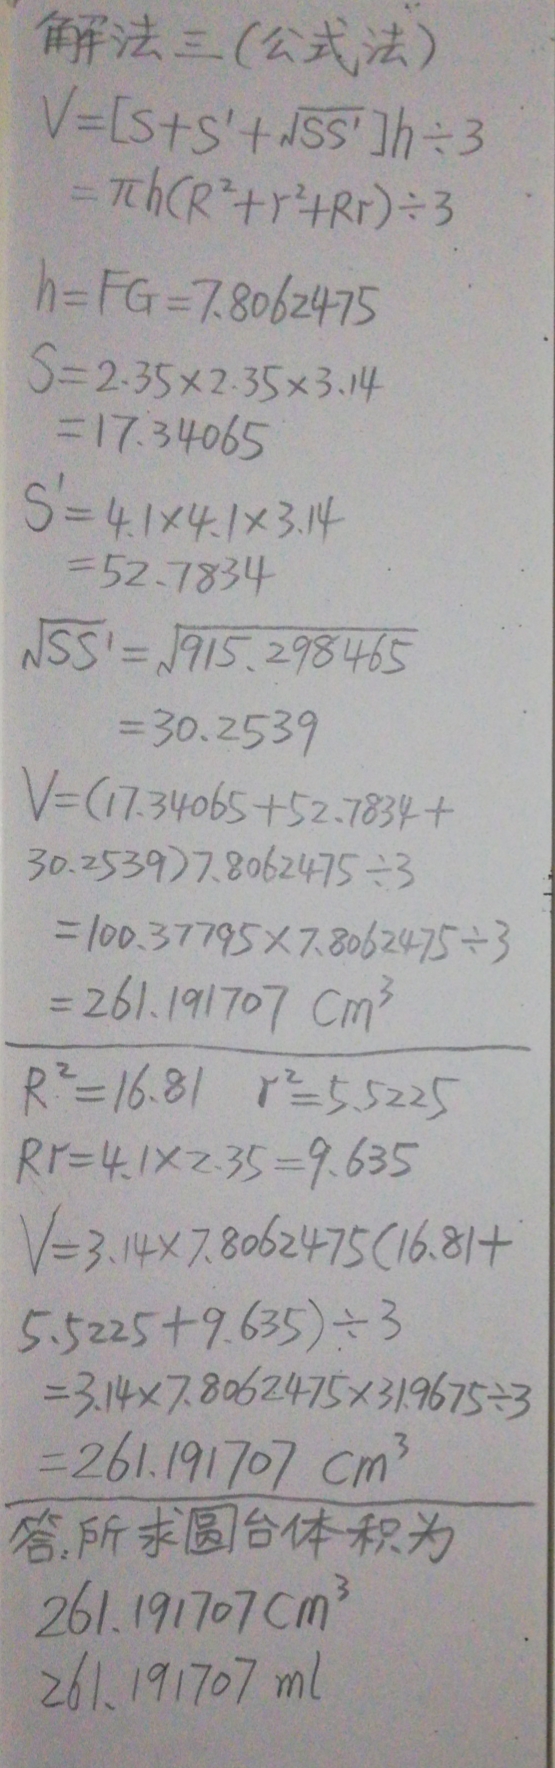 解法三(公式法)
V=[S+S'+√SS']h÷3
=πh(R²+r²+Rr)÷3
h=FG=7.8062475
S=2.35×2.35×3.14
=17.34065
S'=4.1×4.1×3.14
=52.7834
√SS'=√915.298465
=30.2539
V=(17.34065+52.7834+
30.2539)7.8062475÷3
=100.37795×7.8062475÷3
=261.191707 Cm³
R²=16.81 r²=5.5225
Rr=4.1×2.35=9.635
V=3.14×7.8062475(16.81+
5.5225+9.635)÷3
=3.14×7.8062475×31.9675÷3
=261.191707 cm³
答:所求圆台体积为
261.191707cm³
261.191707 ml